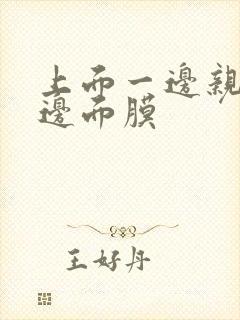 上而一邊親
邊而膜
王好丹